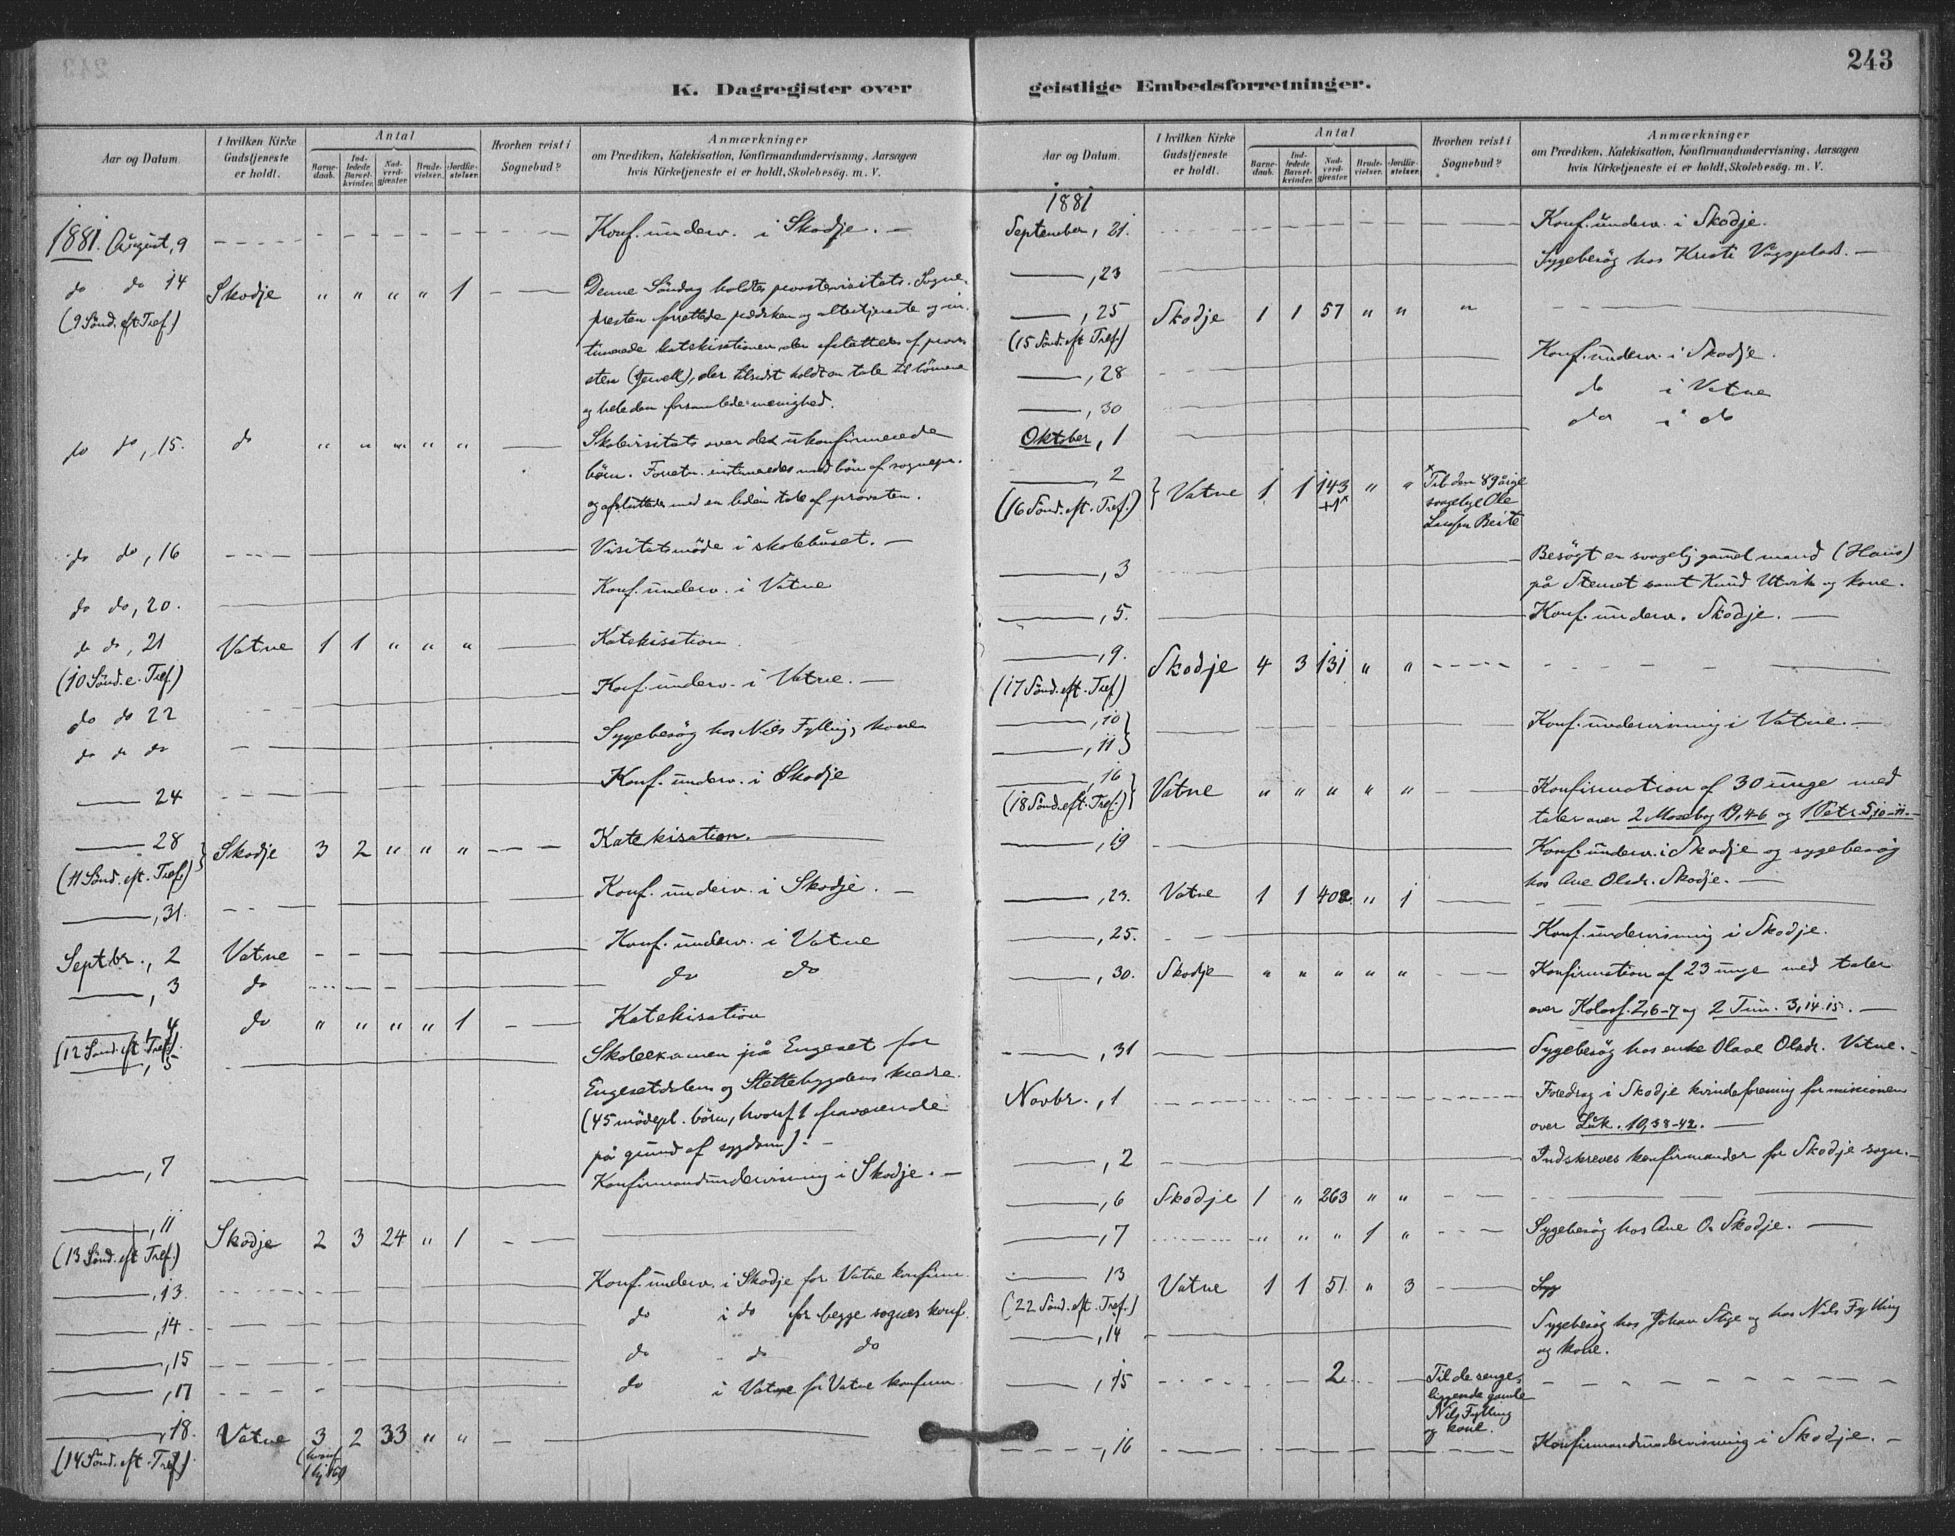 243
K. Dagregister over geistlige Embedsforretninger.
Aar og Datum.
I hvilken Kirke Gudstjeneste er holdt.
Antal
Barnedaab.
Indledede Barselkvinder.
Nadverdgjæster.
Brudevielser.
Jordfæstelser.
Hvorhen reist i Sognebud?
Anmærkninger
om Prædiken, Katekisation, Konfirmandundervisning, Aarsagen
hvis Kirketjeneste ei er holdt, Skolebesøg. m. V.
1881. August, 9 Konf. underv. i Skodje. —
do do 14 Skodje " " " " 1 Denne Söndag holdtes provstevisitats. Sogne-
(9 Sönd. eft. Tref.) presten forrettede prædiken og altertjeneste og in-
tonerede katekisationen, der afsluttedes af prov-
sten (Jervell), der tilsidst holdt en tale til börnene
og hele den forsamlede menighed.
do do, 15. do " " " " " Skolevisitats over de ukonfirmerede
börn. Forretn. med bön af sognepr.
og afsluttedes med en liden tale af provsten.
do do, 16 Visitatsmöde i skolehuset. —
do do, 20. Konf. underv. i Vatne
do do, 21 Vatne 1 1 " " " Katekisation
(10 Sönd. e. Tref.)
do do 22 Konf. underv. i Vatne. —
do do do Sygebesög hos Nils Fyllings kone
— 24 Konf. underv. i Skodje
— 28 Skodje 3 2 " " " Katekisation. —
(11 Sönd. eft. Tref.)
—, 31. Konf. underv. i Skodje. —
Septbr., 2 Vatne Konf. underv. i Vatne
—, 3 do do do
—, 4 do " " " " 1 Katekisation
(12 Sönd. eft. Tref.)
—, 5 Skoleexamen på Engeset for
Engesetdalens og Slettebygdens kredse.
(45 mödepl. börn, hvoraf 1 fraværende
på grund af sygdom). —
—, 7 Konfirmandundervisning i Skodje. —
—, 11 Skodje 2 3 24 " 1
(13 Sönd. eft. Tref.)
—, 13. Konf. underv. i Skodje for Vatne konfirm.
—, 14 do i do for begge sognes konf.
—, 15 do do do
—, 17 do i Vatne for Vatne konfirm.
—, 18. Vatne 3 2 33 " "
(14 Sönd. eft. Tref.) (hvoraf
Aar og Datum.
I hvilken Kirke Gudstjeneste er holdt.
Antal
Barnedaab.
Indledede Barselkvinder.
Nadverdgjæster.
Brudevielser.
Jordfæstelser.
Hvorhen reist i Sognebud?
Anmærkninger
om Prædiken, Katekisation, Konfirmandundervisning, Aarsagen
hvis Kirketjeneste ei er holdt, Skolebesøg. m. V.
1881
September, 21. Konf. underv. i Skodje.
—, 23 Sygebesög hos Kristi Vågsplads. —
—, 25 Skodje 1 1 57 " " "
(15 Sönd. eft. Tref.)
—, 28 Konf. underv. i Skodje.
—, 30 do i Vatne
Oktober, 1 do i do
—, 2 Vatne 1 1 143 " " Til den 89årige
(16 Sönd. eft. Tref.) +1 svagelige Ole
Larsen Beite
—, 3 Besögt en svagelig gammel mand (Hans)
på Stemet samt Knud Utvik og kone.
—, 5. Konf. underv. Skodje. —
—, 9. Skodje 4 3 131 " "
(17 Sönd. eft. Tref.)
—, 10
—, 11 Konf. undervisning i Vatne. —
—, 16 Vatne " " " " " Konfirmation af 30 unge med
(18 Sönd. eft. Tref.) taler over 2 Moseb. 19, 4-6 og 1 Petr. 5, 10-11. —
—, 19 Konf. underv. i Skodje og sygebesög
hos Ane Olsdr. Skodje. —
—, 23. Vatne 1 1 402 " 1
—, 25. Konf. undervisning i Skodje.
—, 30. Skodje " " " " " Konfirmation af 23 unge med taler
over Koloss. 2, 6-7 og 2 Tim. 3, 14-15. —
—, 31 Sygebesög hos enke Olave Olsdr. Vatne. —
Novbr., 1 Foredrag i Skodje kvindeforening for missionen
over Luk. 10, 38-42. —
—, 2 Indskreves konfirmander for Skodje sogn. —
—, 6 Skodje 1 " 263 " "
—, 7 " " " 1 " Sygebesög hos Ane O. Skodje. —
— 13 Vatne 1 1 51. " 3 Syg
(22 Sönd. eft. Tref.)
—, 14 Sygebesög hos Johan Stige og hos Nils Fylling
og kone.
—, 15 2 Til de senge-
liggende gamle
Nils Fylling
og kone.
—, 16 Konfirmandundervisning i Skodje. —